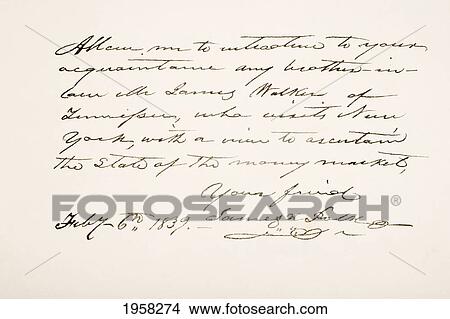 Allow me to introduce to your
acquaintance my brother-in-
law Mr James Walker of
Tennessee, who visits New
York, with a view to ascertain
the State of the money market,
Your friend
James K Polk
Feby 6th 1839.—
FOTOSEARCH®
1958274 www.fotosearch.com